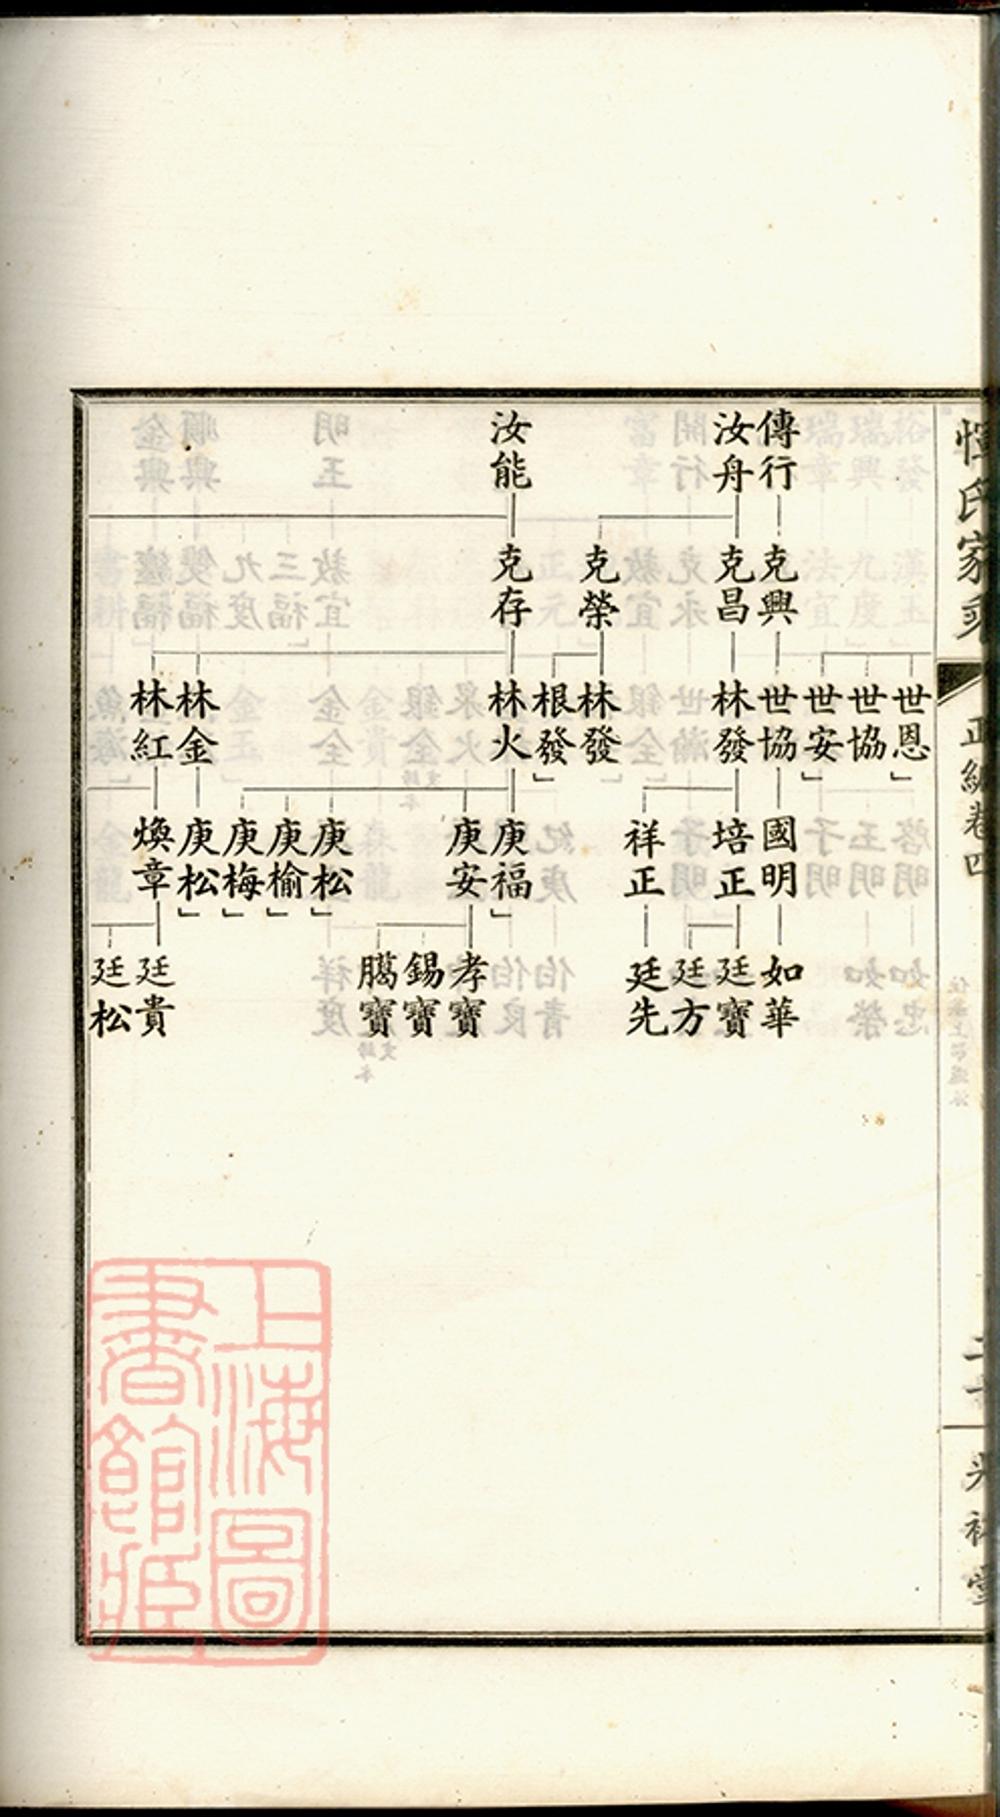 惲氏家乘
正編卷四
傳行
汝舟
汝能
克興
克昌
克榮
克存
世恩
世協
世安
世協
林發
林發
根發
林火
林金
林紅
國明
培正
祥正
庚福
庚安
庚松
庚榆
庚梅
庚松
煥章
如華
廷寶
廷方
廷先
孝寶
錫寶
臈寶
廷貴
廷松
上海圖
書館藏